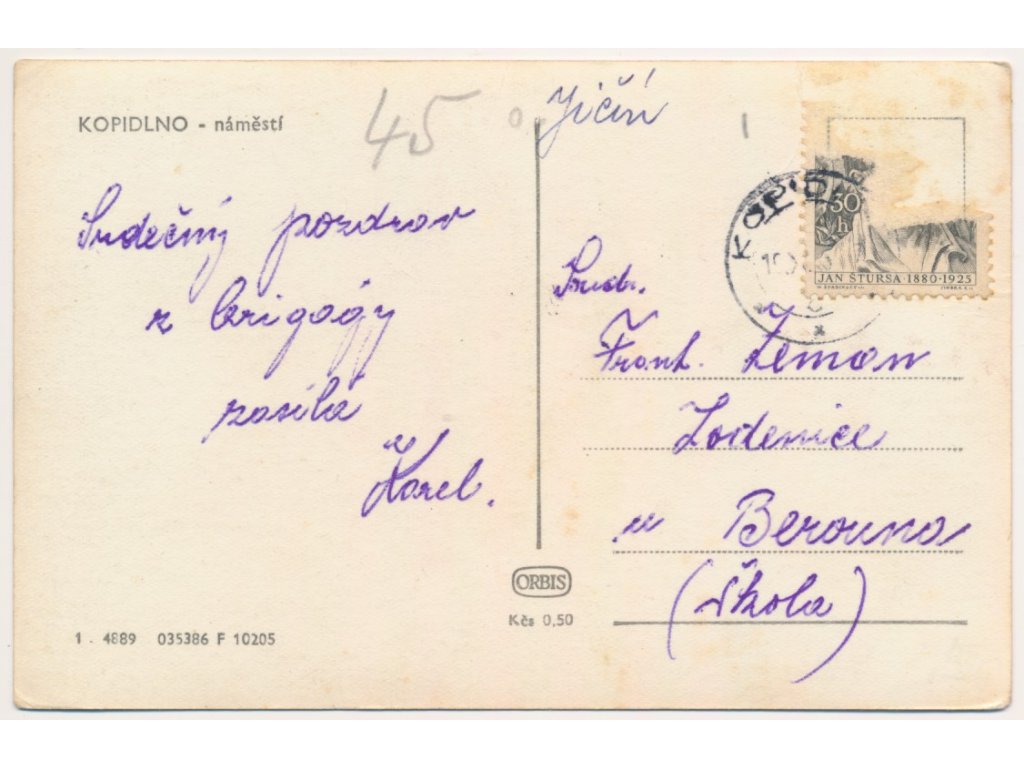 KOPIDLNO - náměstí
45
Jičín
Srdečný pozdrav
z brigády
zasílá
Karel.
30
h
JAN ŠTURSA · 1880-1925
Soudr.
Frant. Zeman
Loděnice
u Berouna
(škola)
ORBIS
Kčs 0,50
1 . 4889 035386 F 10205